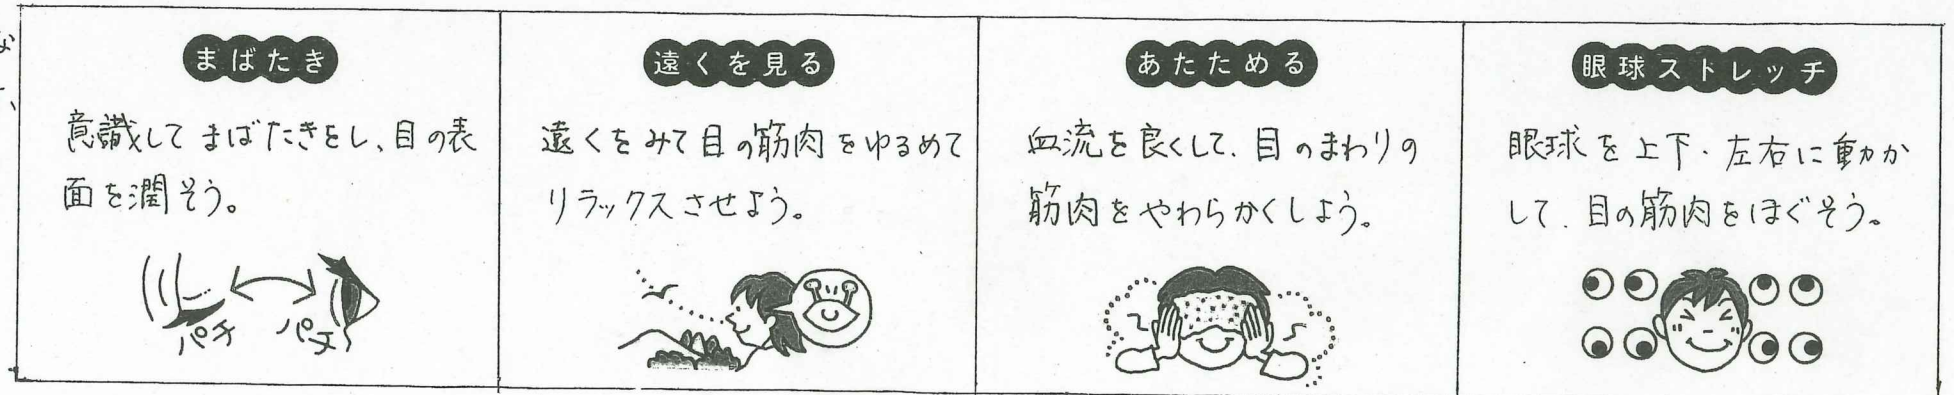 まばたき
意識してまばたきをし、目の表
面を潤そう。
パチ パチ
遠くを見る
遠くをみて目の筋肉をゆるめて
リラックスさせよう。
あたためる
血流を良くして、目のまわりの
筋肉をやわらかくしよう。
眼球ストレッチ
眼球を上下・左右に動か
して、目の筋肉をほぐそう。